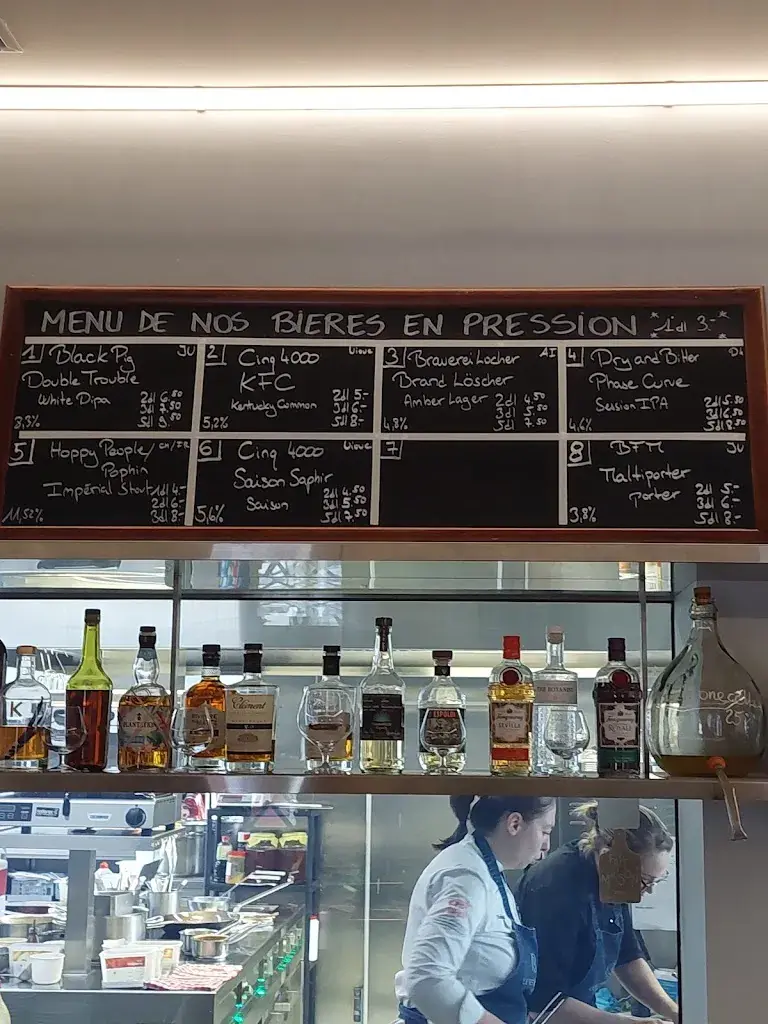 MENU DE NOS BIERES EN PRESSION *1dl 3.-*
1 Black Pig JU
Double Trouble
White Dipa 2dl 6.50
3dl 7.50
8,5% 5dl 9.50
2 Cinq 4000
KFC
Kentucky Common 2dl 5.-
3dl 6.-
5,2% 5dl 8.-
3 Brauerei Locher AI
Brand Löscher
Amber Lager 2dl 4.50
3dl 5.50
4,8% 5dl 7.50
4 Dry and Bitter Dk
Phase Curve
Session IPA 2dl 5.50
3dl 6.50
4,6% 5dl 8.50
5 Hoppy People/ CH/FR
Pophin
Impérial Stout 1dl 4.-
2dl 6.-
11,52% 3dl 8.-
6 Cinq 4000
Saison Saphir
Saison 2dl 4.50
3dl 5.50
5,6% 5dl 7.50
7
8 BFM JU
Maltiporter
porter 2dl 5.-
3dl 6.-
3,8% 5dl 8.-
K
PLANTATION
Clément
ESPOLON
SEVILLA
THE BOTANIST